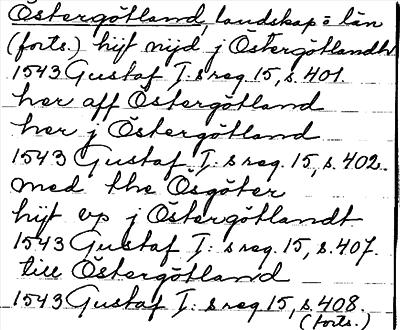 Östergötland, landskap o län
(forts.) hijt nijd j Östergötlandh
1543 Gustaf I:s reg. 15, s. 401.
her aff Östergötland
her j Östergötland
1543 Gustaf I:s reg. 15, s. 402.
med the Ösgöter
hijt vp j Östergötlandt
1543 Gustaf I:s reg. 15, s. 407.
till Östergötland
1543 Gustaf I:s reg. 15, s. 408.
(forts.)